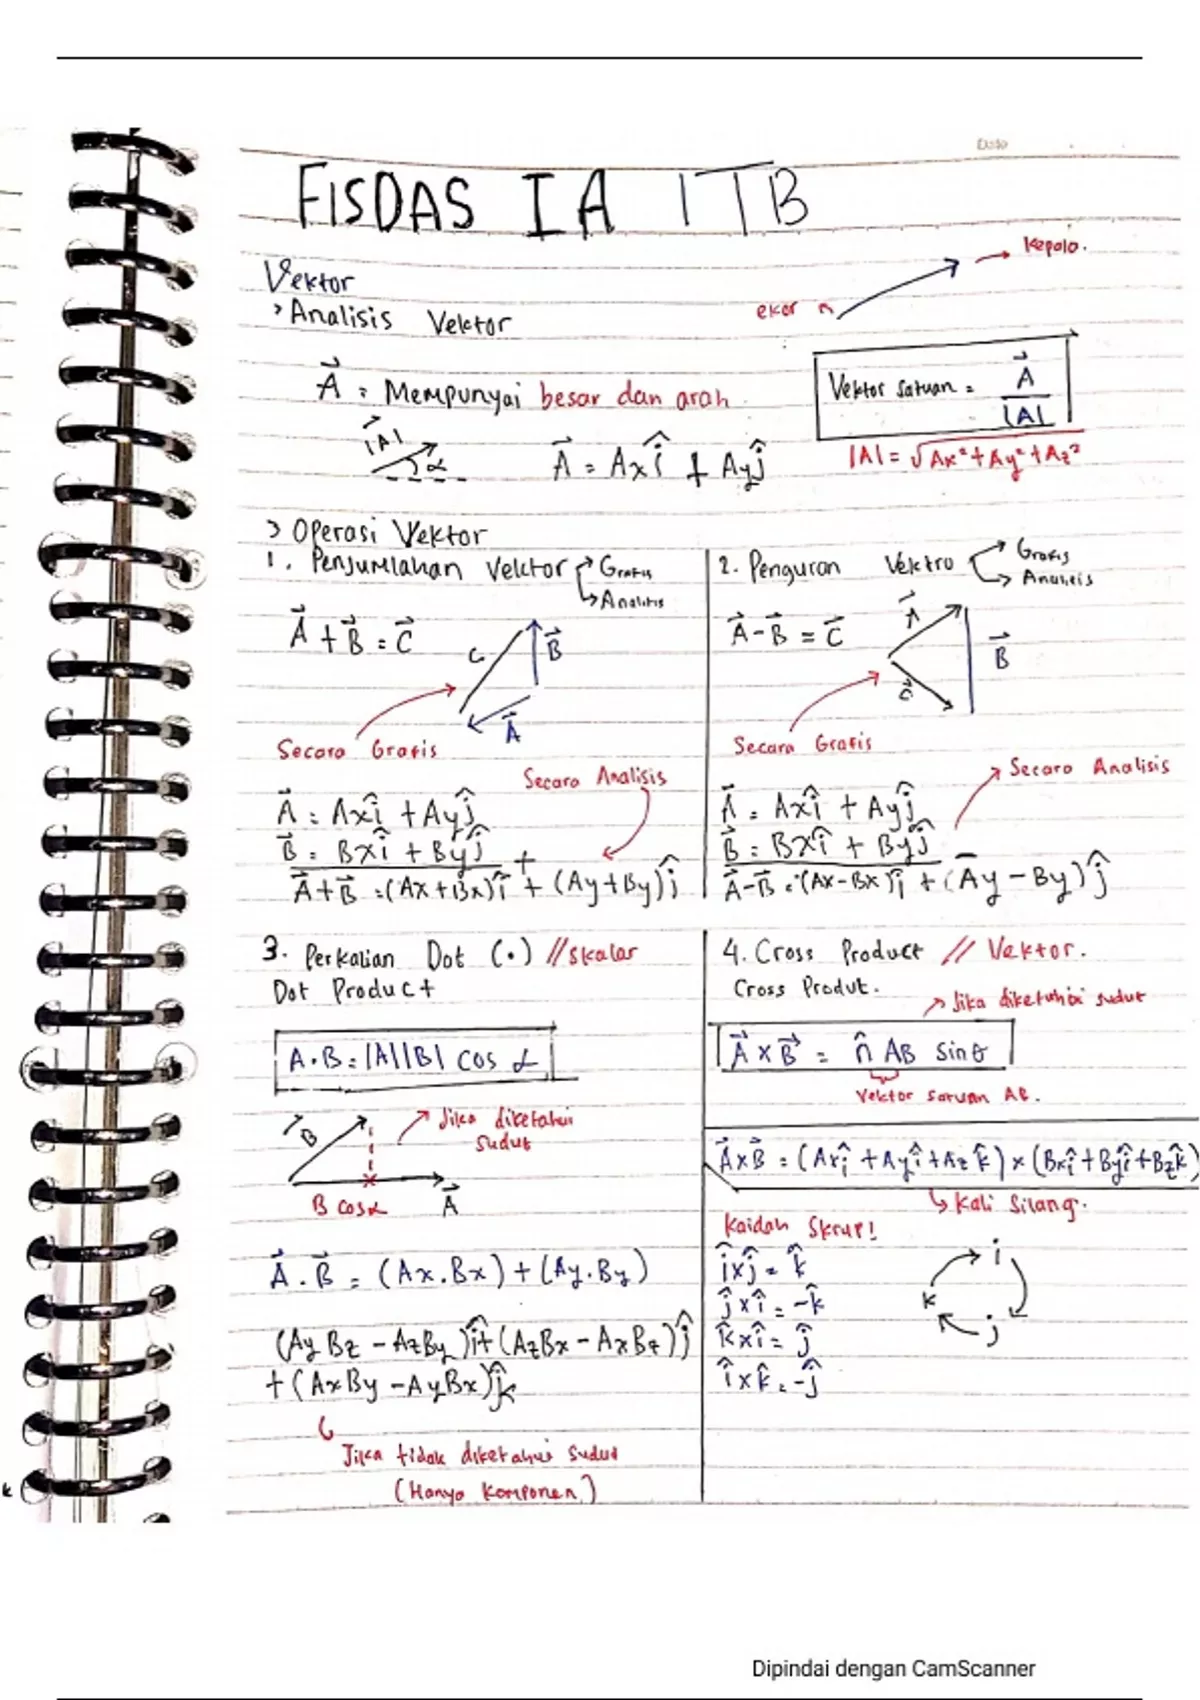 Date
FISDAS IA ITB
Vektor
> Analisis Vektor
ekor
Kepala.
A⃗ = Mempunyai besar dan arah
Vektor Satuan = A⃗ / |A|
|A| = √Ax² + Ay² + Az²
|A⃗|
α
A⃗ = Axî + Ayĵ
> Operasi Vektor
1. Penjumlahan Vektor → Grafis
→ Analitis
A⃗ + B⃗ = C⃗
C
B⃗
A⃗
Secara Grafis
Secara Analisis
A⃗ = Axî + Ayĵ
B⃗ = Bxî + Byĵ +
A⃗+B⃗ = (Ax+Bx)î + (Ay+By)ĵ
2. Penguran Vektro → Grafis
→ Analisis
A⃗ - B⃗ = C⃗
A⃗
B⃗
C⃗
Secara Grafis
Secara Analisis
A⃗ = Axî + Ayĵ
B⃗ = Bxî + Byĵ
A⃗-B⃗ = (Ax-Bx)î + (Ay - By)ĵ
3. Perkalian Dot (•) // Skalar
Dot Product
A•B = |A||B| cos α
B⃗
Jika diketahui
sudut
B cosα
A⃗
A⃗ . B⃗ = (Ax.Bx) + (Ay.By)
(AyBz - AzBy)î + (AzBx - AxBz)ĵ
+ (AxBy - AyBx)k̂
Jika tidak diketahui sudut
(Hanya Komponen)
4. Cross Product // Vektor.
Cross Produt.
Jika diketahui sudut
A⃗ x B⃗ = n̂ AB sin θ
Vektor satuan AB.
A⃗xB⃗ = (Axî + Ayî + Az k̂) x (Bxî + Byî + Bzk̂)
Kali Silang.
Kaidah Skrup!
îxĵ = k̂
ĵxî = -k̂
k̂xî = ĵ
îxk̂ = -ĵ
i
k
j
k
Dipindai dengan CamScanner